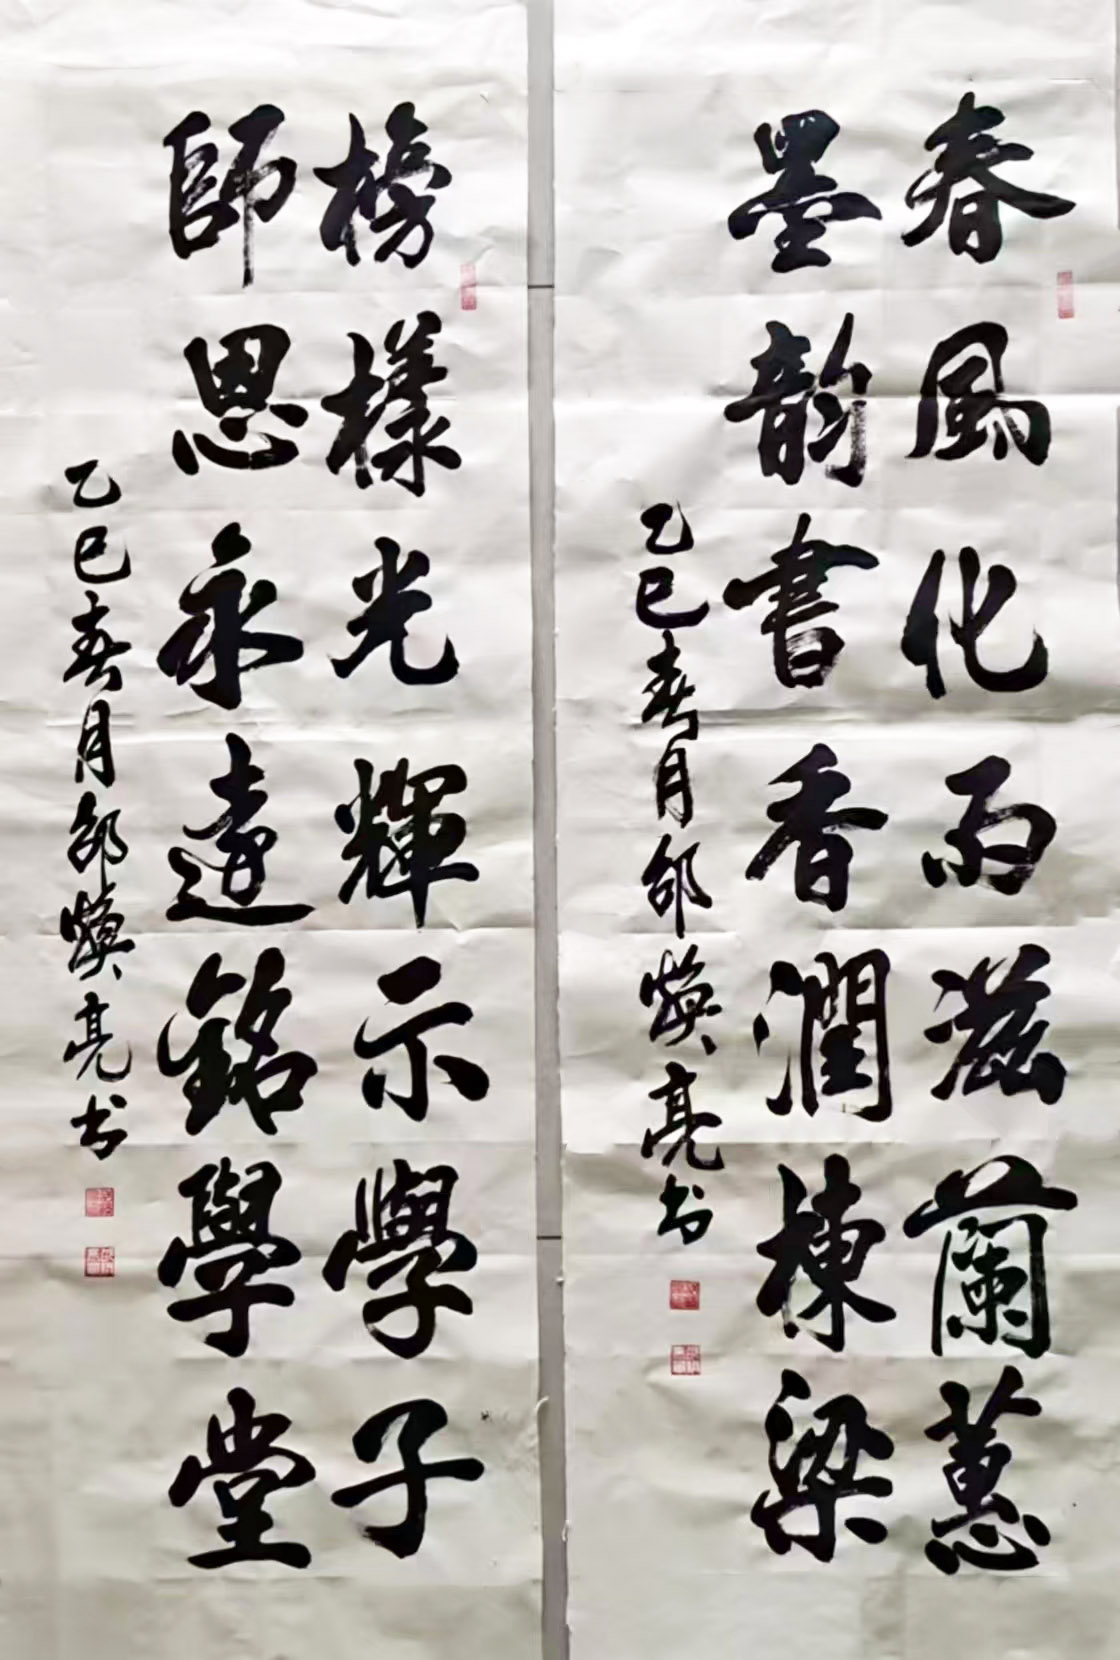 春風化雨滋蘭蕙
墨韵書香潤棟梁
乙巳春月邰焕亮书
榜樣光輝示學子
師恩永遠銘學堂
乙巳春月邰焕亮书